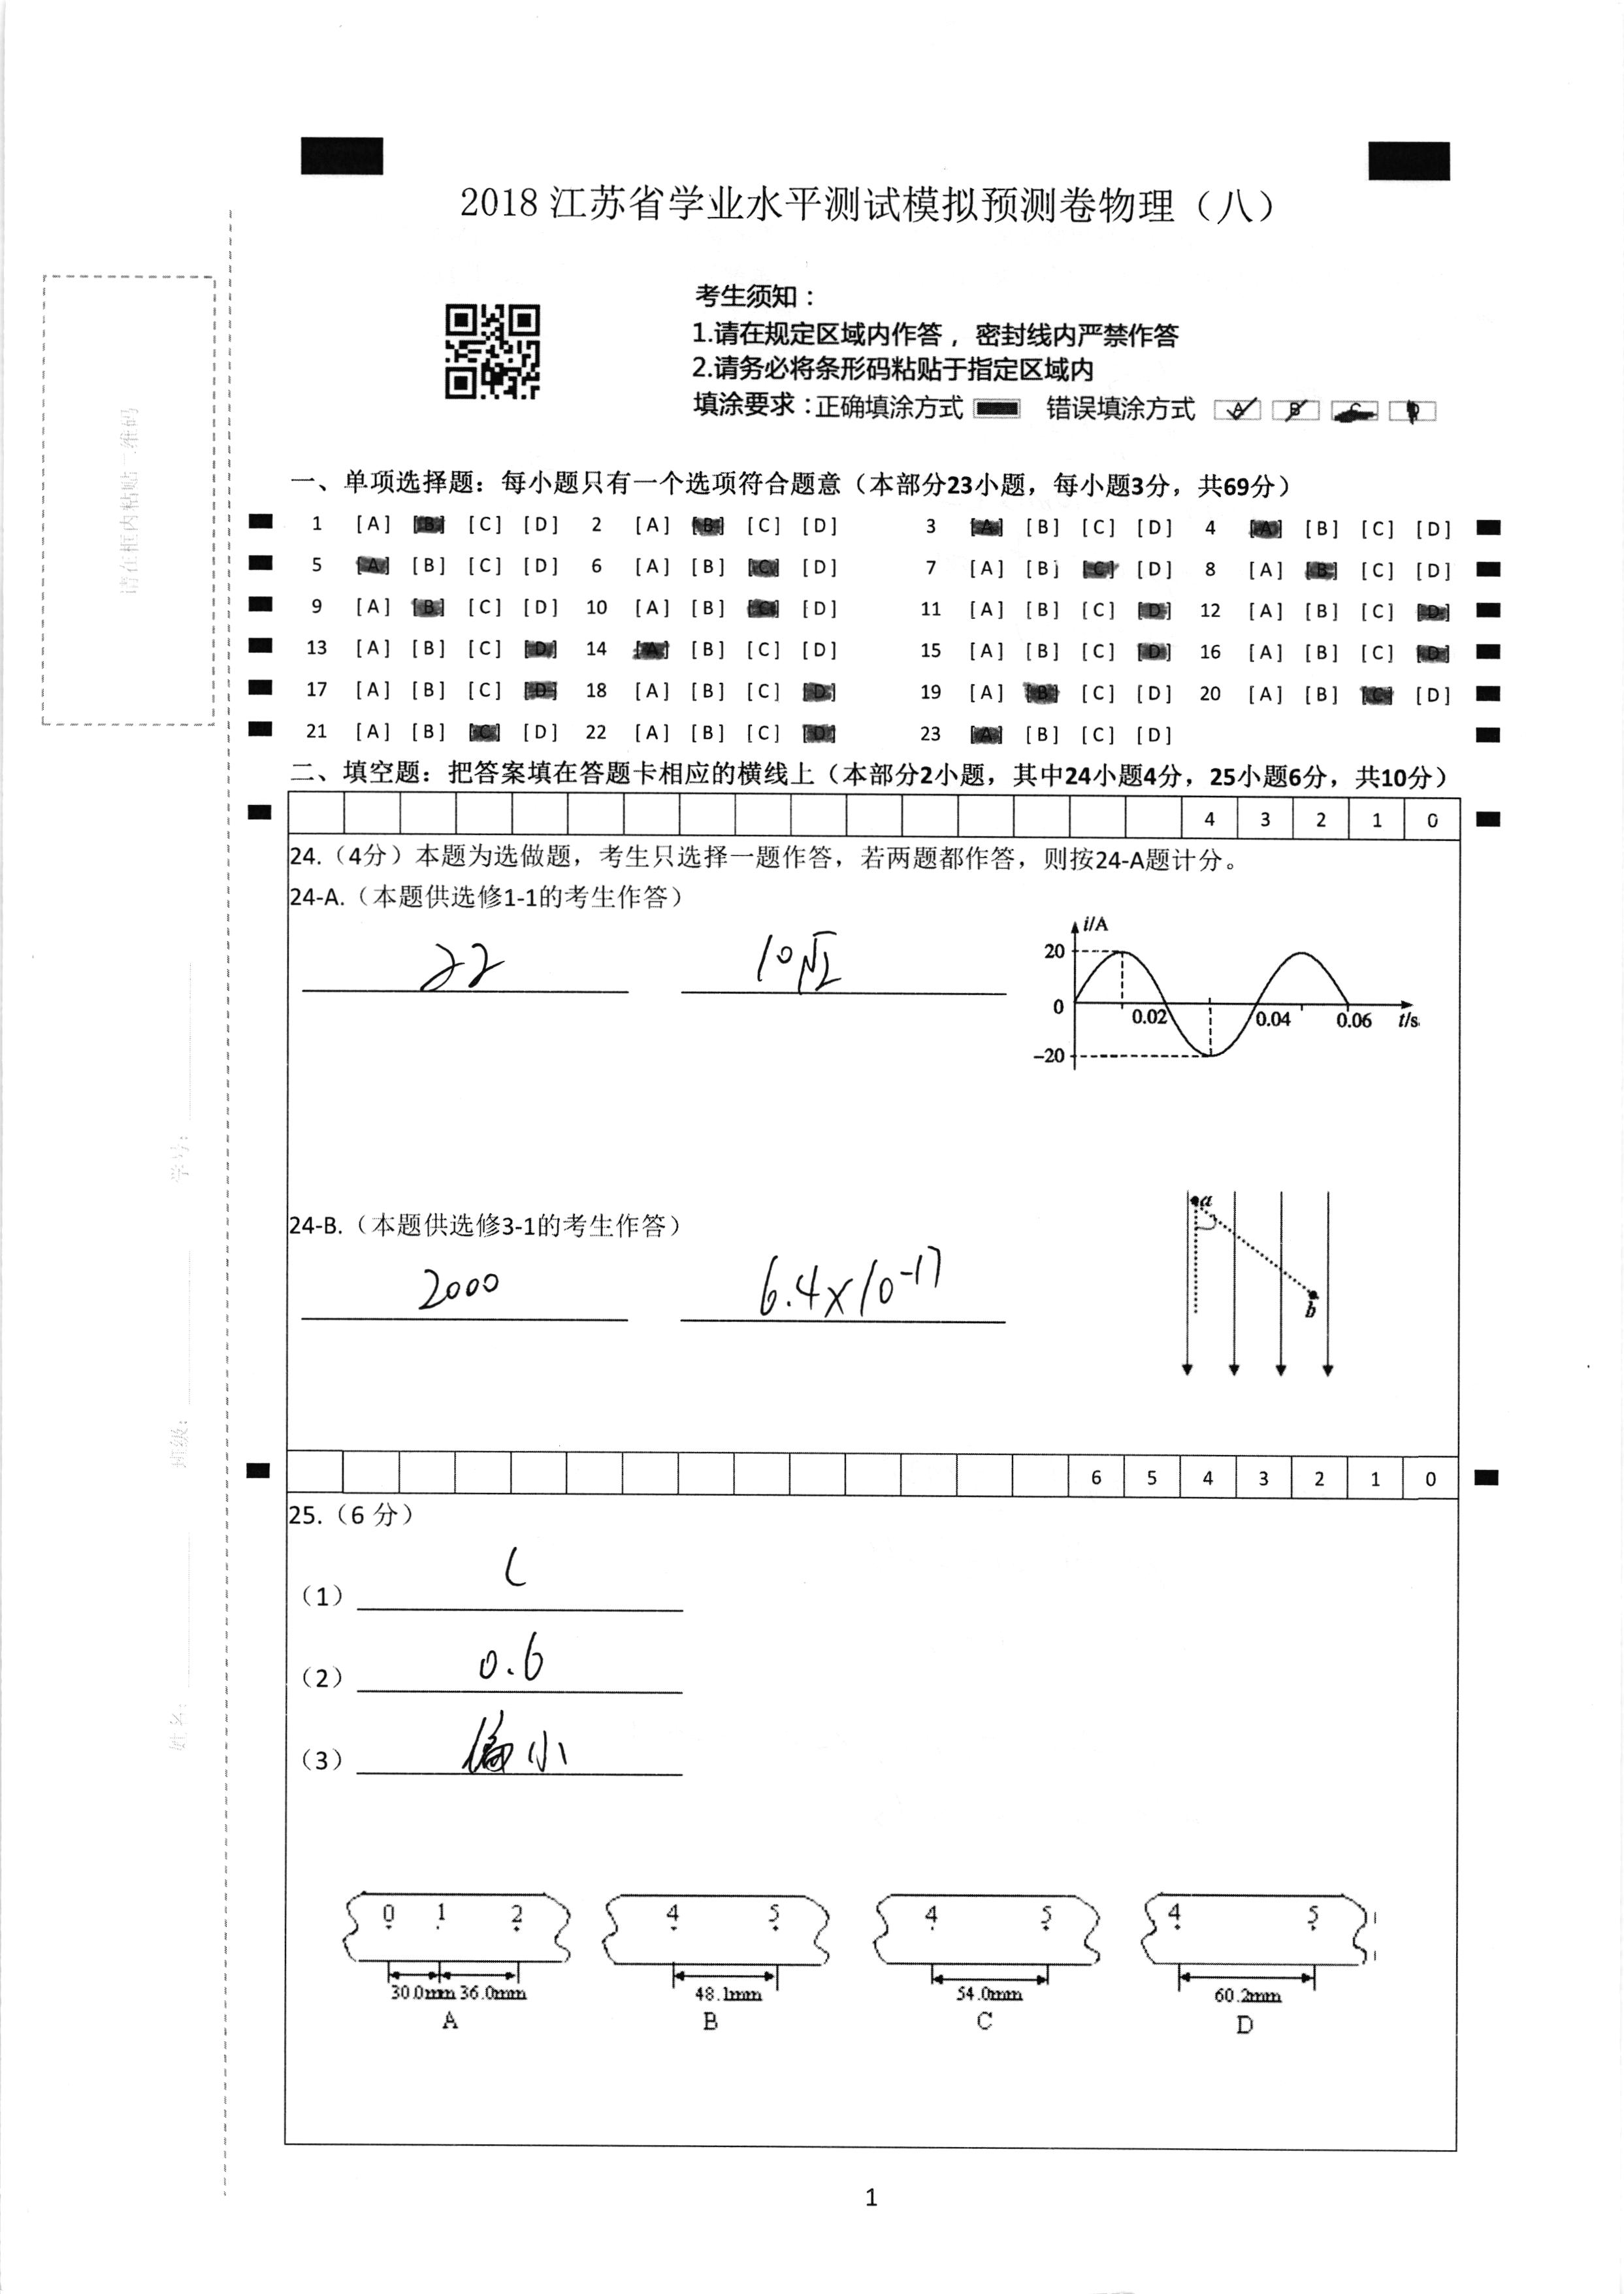 2018 江苏省学业水平测试模拟预测卷物理（八）
考生须知：
1.请在规定区域内作答，密封线内严禁作答
2.请务必将条形码粘贴于指定区域内
填涂要求：正确填涂方式 错误填涂方式 A B C D
请在框内粘贴二维码
学号：
班级：
姓名：
一、单项选择题：每小题只有一个选项符合题意（本部分23小题，每小题3分，共69分）
1 [A] [B] [C] [D] 2 [A] [B] [C] [D] 3 [A] [B] [C] [D] 4 [A] [B] [C] [D]
5 [A] [B] [C] [D] 6 [A] [B] [C] [D] 7 [A] [B] [C] [D] 8 [A] [B] [C] [D]
9 [A] [B] [C] [D] 10 [A] [B] [C] [D] 11 [A] [B] [C] [D] 12 [A] [B] [C] [D]
13 [A] [B] [C] [D] 14 [A] [B] [C] [D] 15 [A] [B] [C] [D] 16 [A] [B] [C] [D]
17 [A] [B] [C] [D] 18 [A] [B] [C] [D] 19 [A] [B] [C] [D] 20 [A] [B] [C] [D]
21 [A] [B] [C] [D] 22 [A] [B] [C] [D] 23 [A] [B] [C] [D]
二、填空题：把答案填在答题卡相应的横线上（本部分2小题，其中24小题4分，25小题6分，共10分）
4 3 2 1 0
24.（4分）本题为选做题，考生只选择一题作答，若两题都作答，则按24-A题计分。
24-A.（本题供选修1-1的考生作答）
22 10√2
i/A
20
0 0.02 0.04 0.06 t/s
-20
24-B.（本题供选修3-1的考生作答）
2000 6.4×10⁻¹⁷
a
b
6 5 4 3 2 1 0
25.（6 分）
（1） C
（2） 0.6
（3） 偏小
0 1 2 4 5 4 5 4 5
30.0mm 36.0mm 48.1mm 54.0mm 60.2mm
A B C D
1